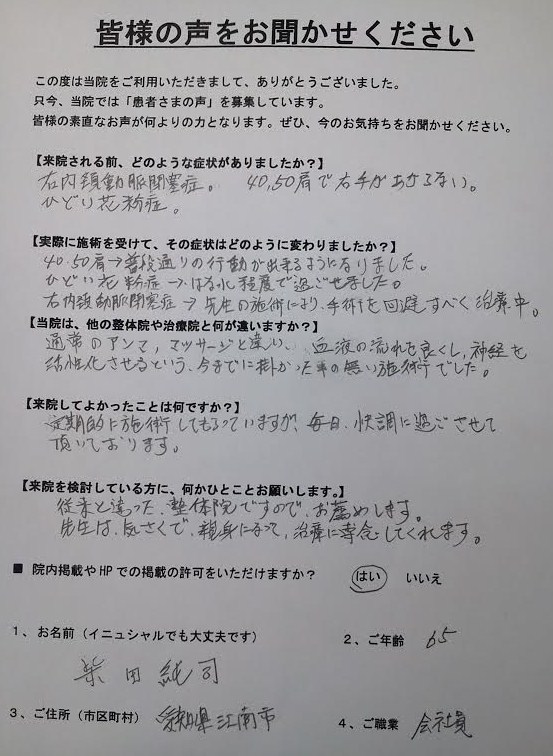 皆様の声をお聞かせください
この度は当院をご利用いただきまして、ありがとうございました。
只今、当院では「患者さまの声」を募集しています。
皆様の素直なお声が何よりの力となります。ぜひ、今のお気持ちをお聞かせください。
【来院される前、どのような症状がありましたか？】
右内頚動脈閉塞症。 40,50肩で右手があがらない。
ひどい花粉症。
【実際に施術を受けて、その症状はどのように変わりましたか？】
40.50肩→普段通りの行動が出来るようになりました。
ひどい花粉症→はな水程度で過ごせました。
右内頚動脈閉塞症→先生の施術により、手術を回避すべく治療中。
【当院は、他の整体院や治療院と何が違いますか？】
通常のアンマ、マッサージと違い、血液の流れを良くし、神経を
活性化させるという、今までに掛かった事の無い施術でした。
【来院してよかったことは何ですか？】
定期的に施術してもらっていますが、毎日、快調に過ごさせて
頂いております。
【来院を検討している方に、何かひとことお願いします。】
従来と違った、整体院ですので、お薦めします。
先生は、気さくで、親身になって、治療に専念してくれます。
■ 院内掲載やHPでの掲載の許可をいただけますか？ はい いいえ
1、お名前（イニュシャルでも大丈夫です） 2、ご年齢 65
柴田純司
3、ご住所（市区町村） 愛知県江南市 4、ご職業 会社員